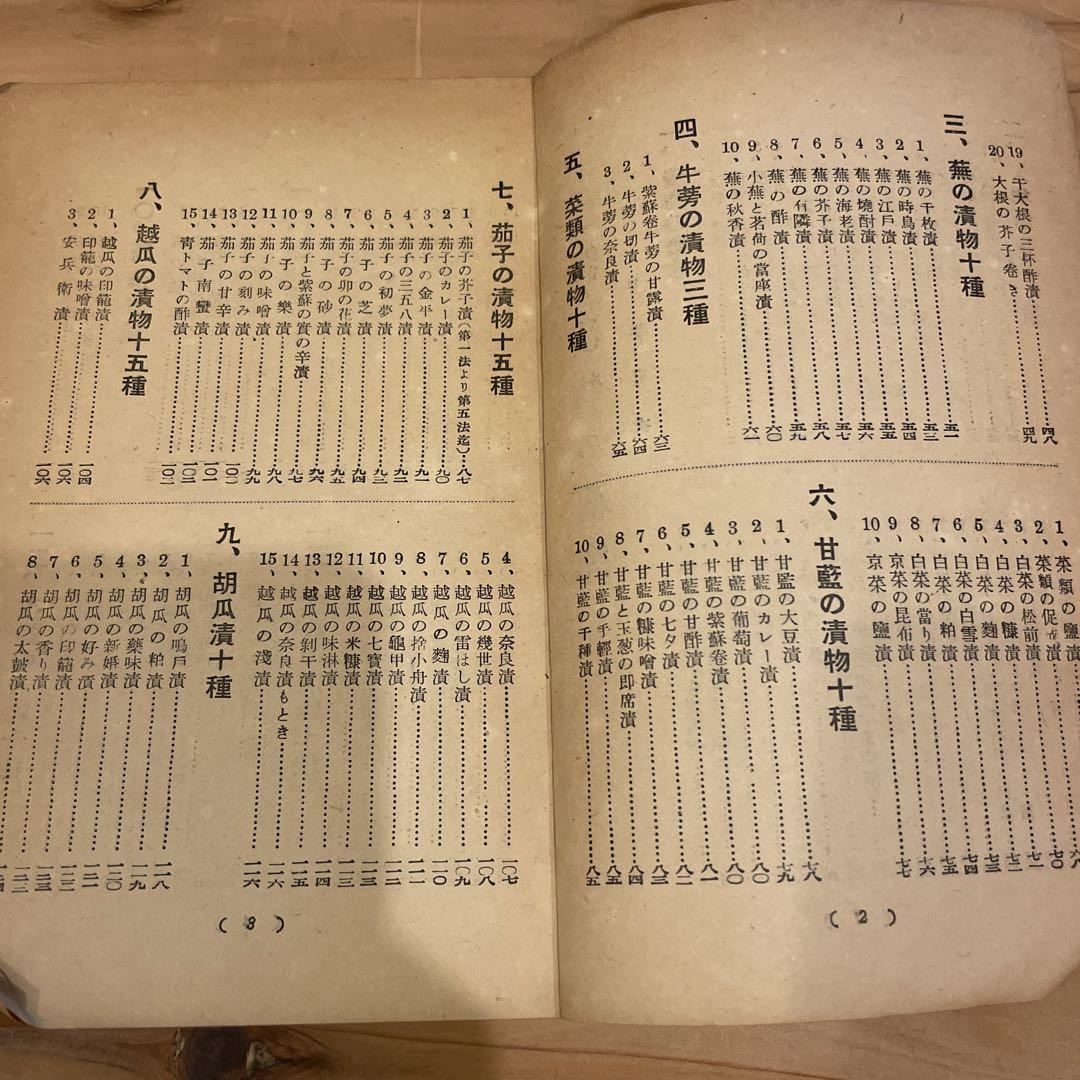 19、干大根の三杯酢漬……四八
20、大根の芥子卷き……四九
三、蕪の漬物十種
1、蕪の千枚漬……五一
2、蕪の時鳥漬……五三
3、蕪の江戶漬……五四
4、蕪の燒酎漬……五五
5、蕪の海老漬……五六
6、蕪の芥子漬……五七
7、蕪の有隣漬……五八
8、蕪の酢漬……五九
9、小蕪と茗荷の當座漬……六〇
10、蕪の秋香漬……六一
四、牛蒡の漬物三種
1、紫蘇卷牛蒡の甘露漬……六三
2、牛蒡の切漬……六四
3、牛蒡の奈良漬……六五
五、菜類の漬物十種
1、菜類の鹽漬
2、菜類の促成漬……七〇
3、白菜の松前漬……七一
4、白菜の糠漬……七二
5、白菜の麴漬……七三
6、白菜の白雪漬……七四
7、白菜の粕漬……七五
8、白菜の當り漬……七六
9、京菜の昆布漬……七七
10、京菜の鹽漬……七七
六、甘藍の漬物十種
1、甘藍の大豆漬……七八
2、甘藍のカレー漬……七九
3、甘藍の葡萄漬……八〇
4、甘藍の紫蘇卷漬……八〇
5、甘藍の甘酢漬……八一
6、甘藍の七夕漬……八二
7、甘藍の糠味噌漬……八三
8、甘藍と玉葱の卽席漬……八四
9、甘藍の手輕漬……八五
10、甘藍の千種漬……八五
( 2 )
七、茄子の漬物十五種
1、茄子の芥子漬(第一法より第五法迄)……八七
2、茄子のカレー漬……九〇
3、茄子の金平漬……九一
4、茄子の三五八漬……九二
5、茄子の初夢漬……九三
6、茄子の芝漬……九四
7、茄子の卯の花漬……九五
8、茄子の砂漬……九六
9、茄子と紫蘇の實の辛漬……九七
10、茄子の樂漬……九七
11、茄子の味噌漬……九八
12、茄子の刻み漬……九九
13、茄子の甘辛漬……一〇〇
14、茄子南蠻漬……一〇一
15、靑トマトの酢漬……一〇二
八、越瓜の漬物十五種
1、越瓜の印籠漬……一〇四
2、印籠の味噌漬……一〇六
3、安兵衞漬……一〇六
4、越瓜の奈良漬……一〇七
5、越瓜の幾世漬……一〇八
6、越瓜の雷はし漬……一〇九
7、越瓜の麴漬……一一〇
8、越瓜の捨小舟漬……一一一
9、越瓜の龜甲漬……一一二
10、越瓜の七寶漬……一一三
11、越瓜の米糠漬……一一三
12、越瓜の味淋漬……一一四
13、越瓜の剝干漬……一一五
14、越瓜の奈良漬もとき……一一六
15、越瓜の淺漬……一一六
九、胡瓜漬十種
1、胡瓜の鳴戶漬……一一八
2、胡瓜の粕漬……一一九
3、胡瓜の藥味漬……一一九
4、胡瓜の新婚漬……一二〇
5、胡瓜の好み漬……一二一
6、胡瓜の印籠漬……一二二
7、胡瓜の香り漬……一二三
8、胡瓜の太鼓漬
( 3 )